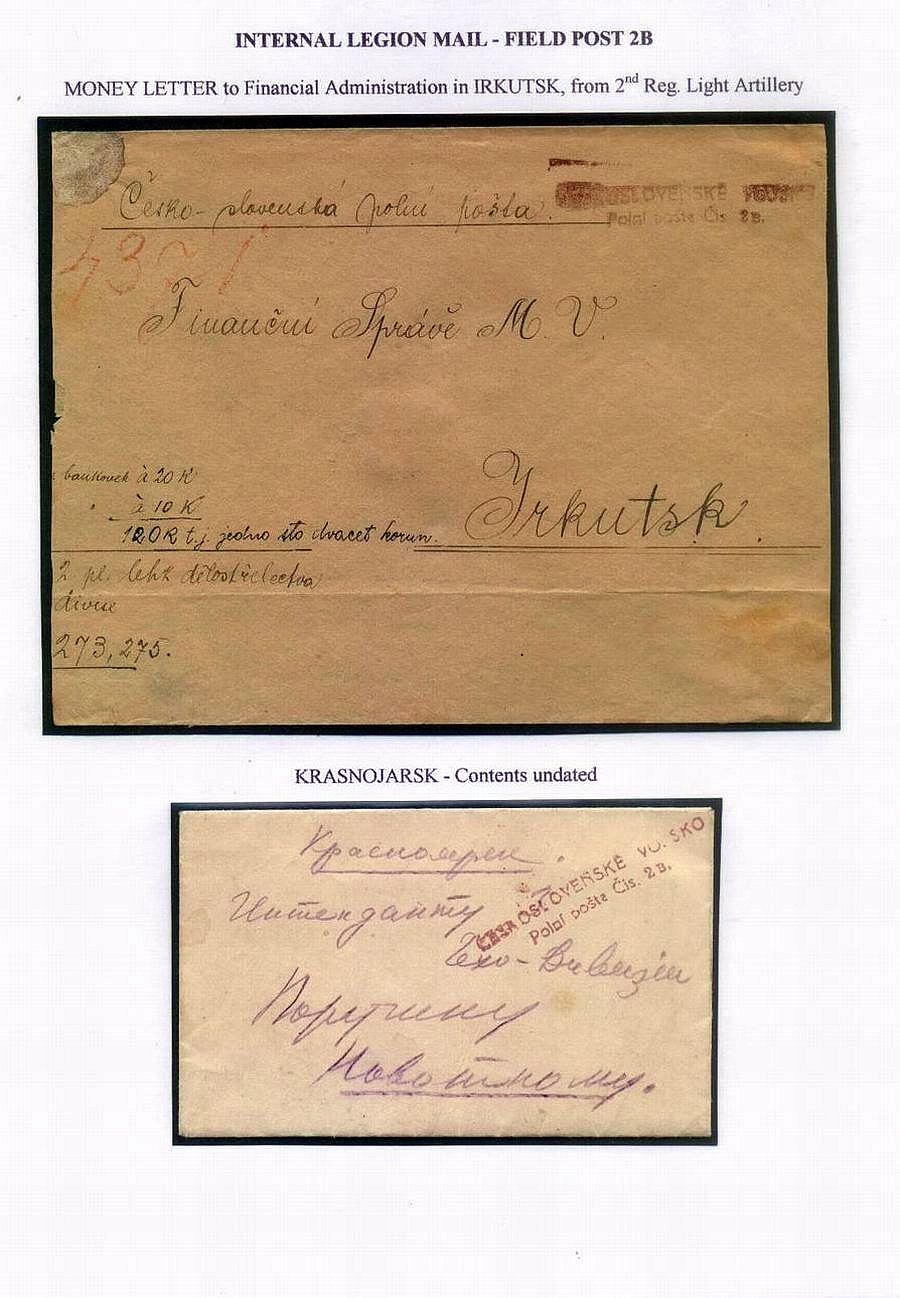 INTERNAL LEGION MAIL - FIELD POST 2B
MONEY LETTER to Financial Administration in IRKUTSK, from 2nd Reg. Light Artillery
Česko-slovenská polní pošta.
OSLOVENSKÉ VOJSK
Polní pošta Čis. 2B.
4321
Finanční Správě M. V.
bankovek à 20 K
" à 10 K
120K t.j. jedno sto dvacet korun.
Irkutsk.
2 pl. lehk dělostřelectva
divise
273, 275.
KRASNOJARSK - Contents undated
Красноярск.
ČESKOSLOVENSKÉ VOJSKO
Polní pošta Čis. 2B.
Интенданту
Чехо-
Поручику
Новотному.